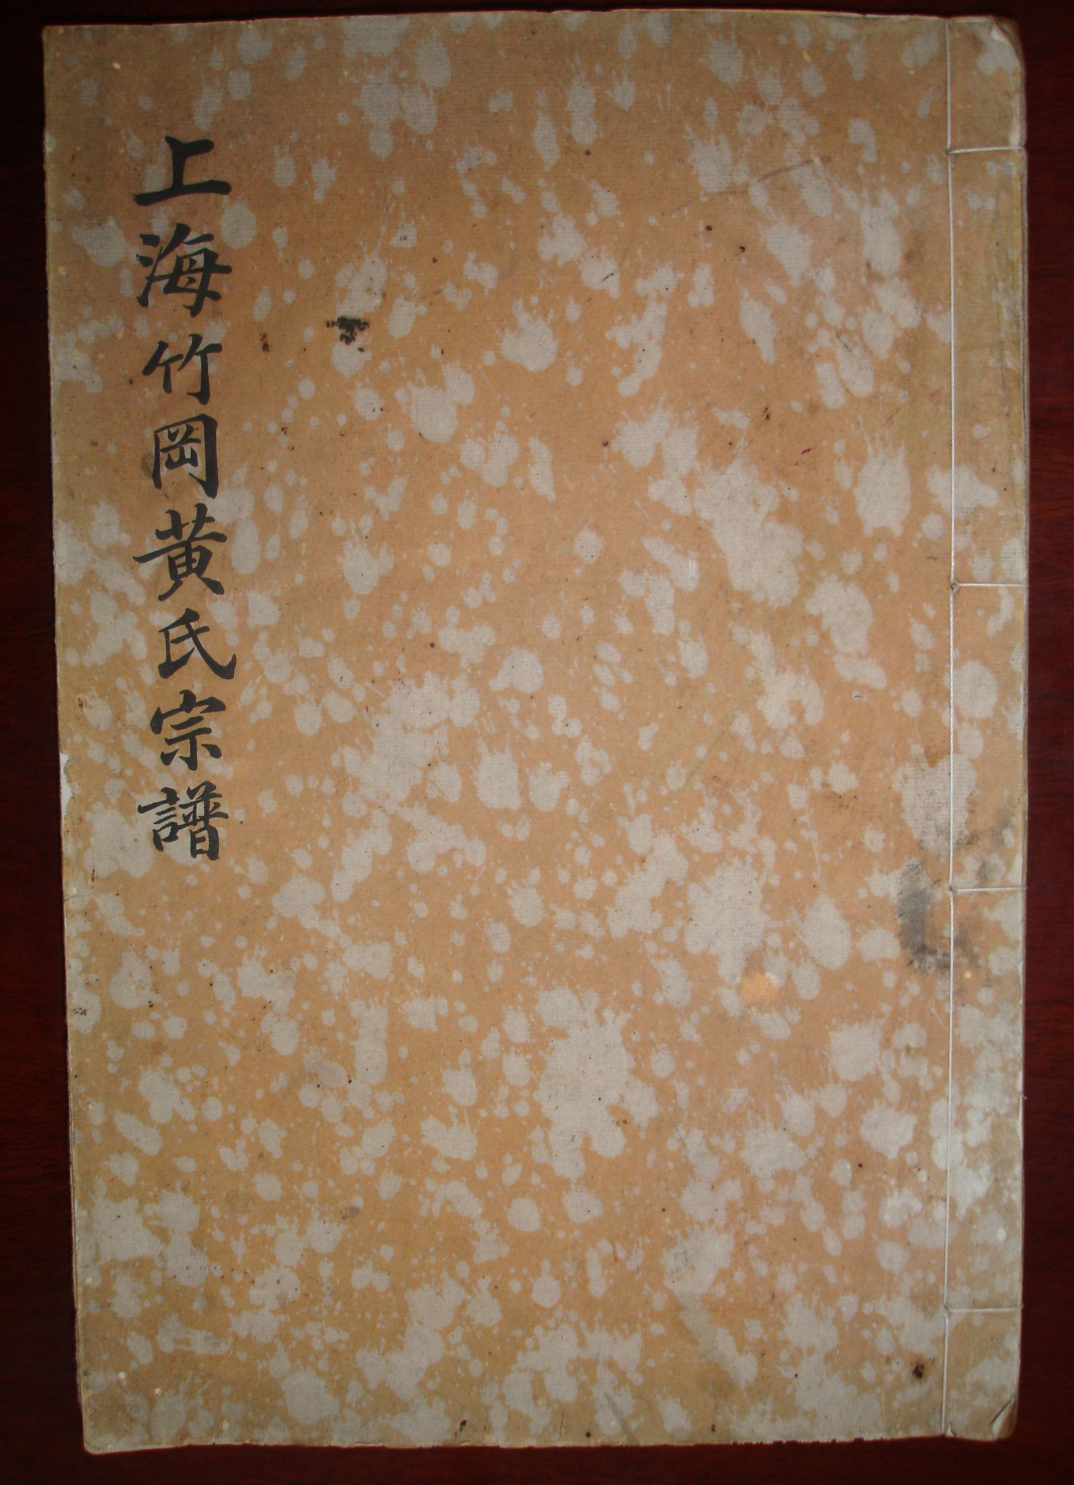 上海竹岡黃氏宗譜